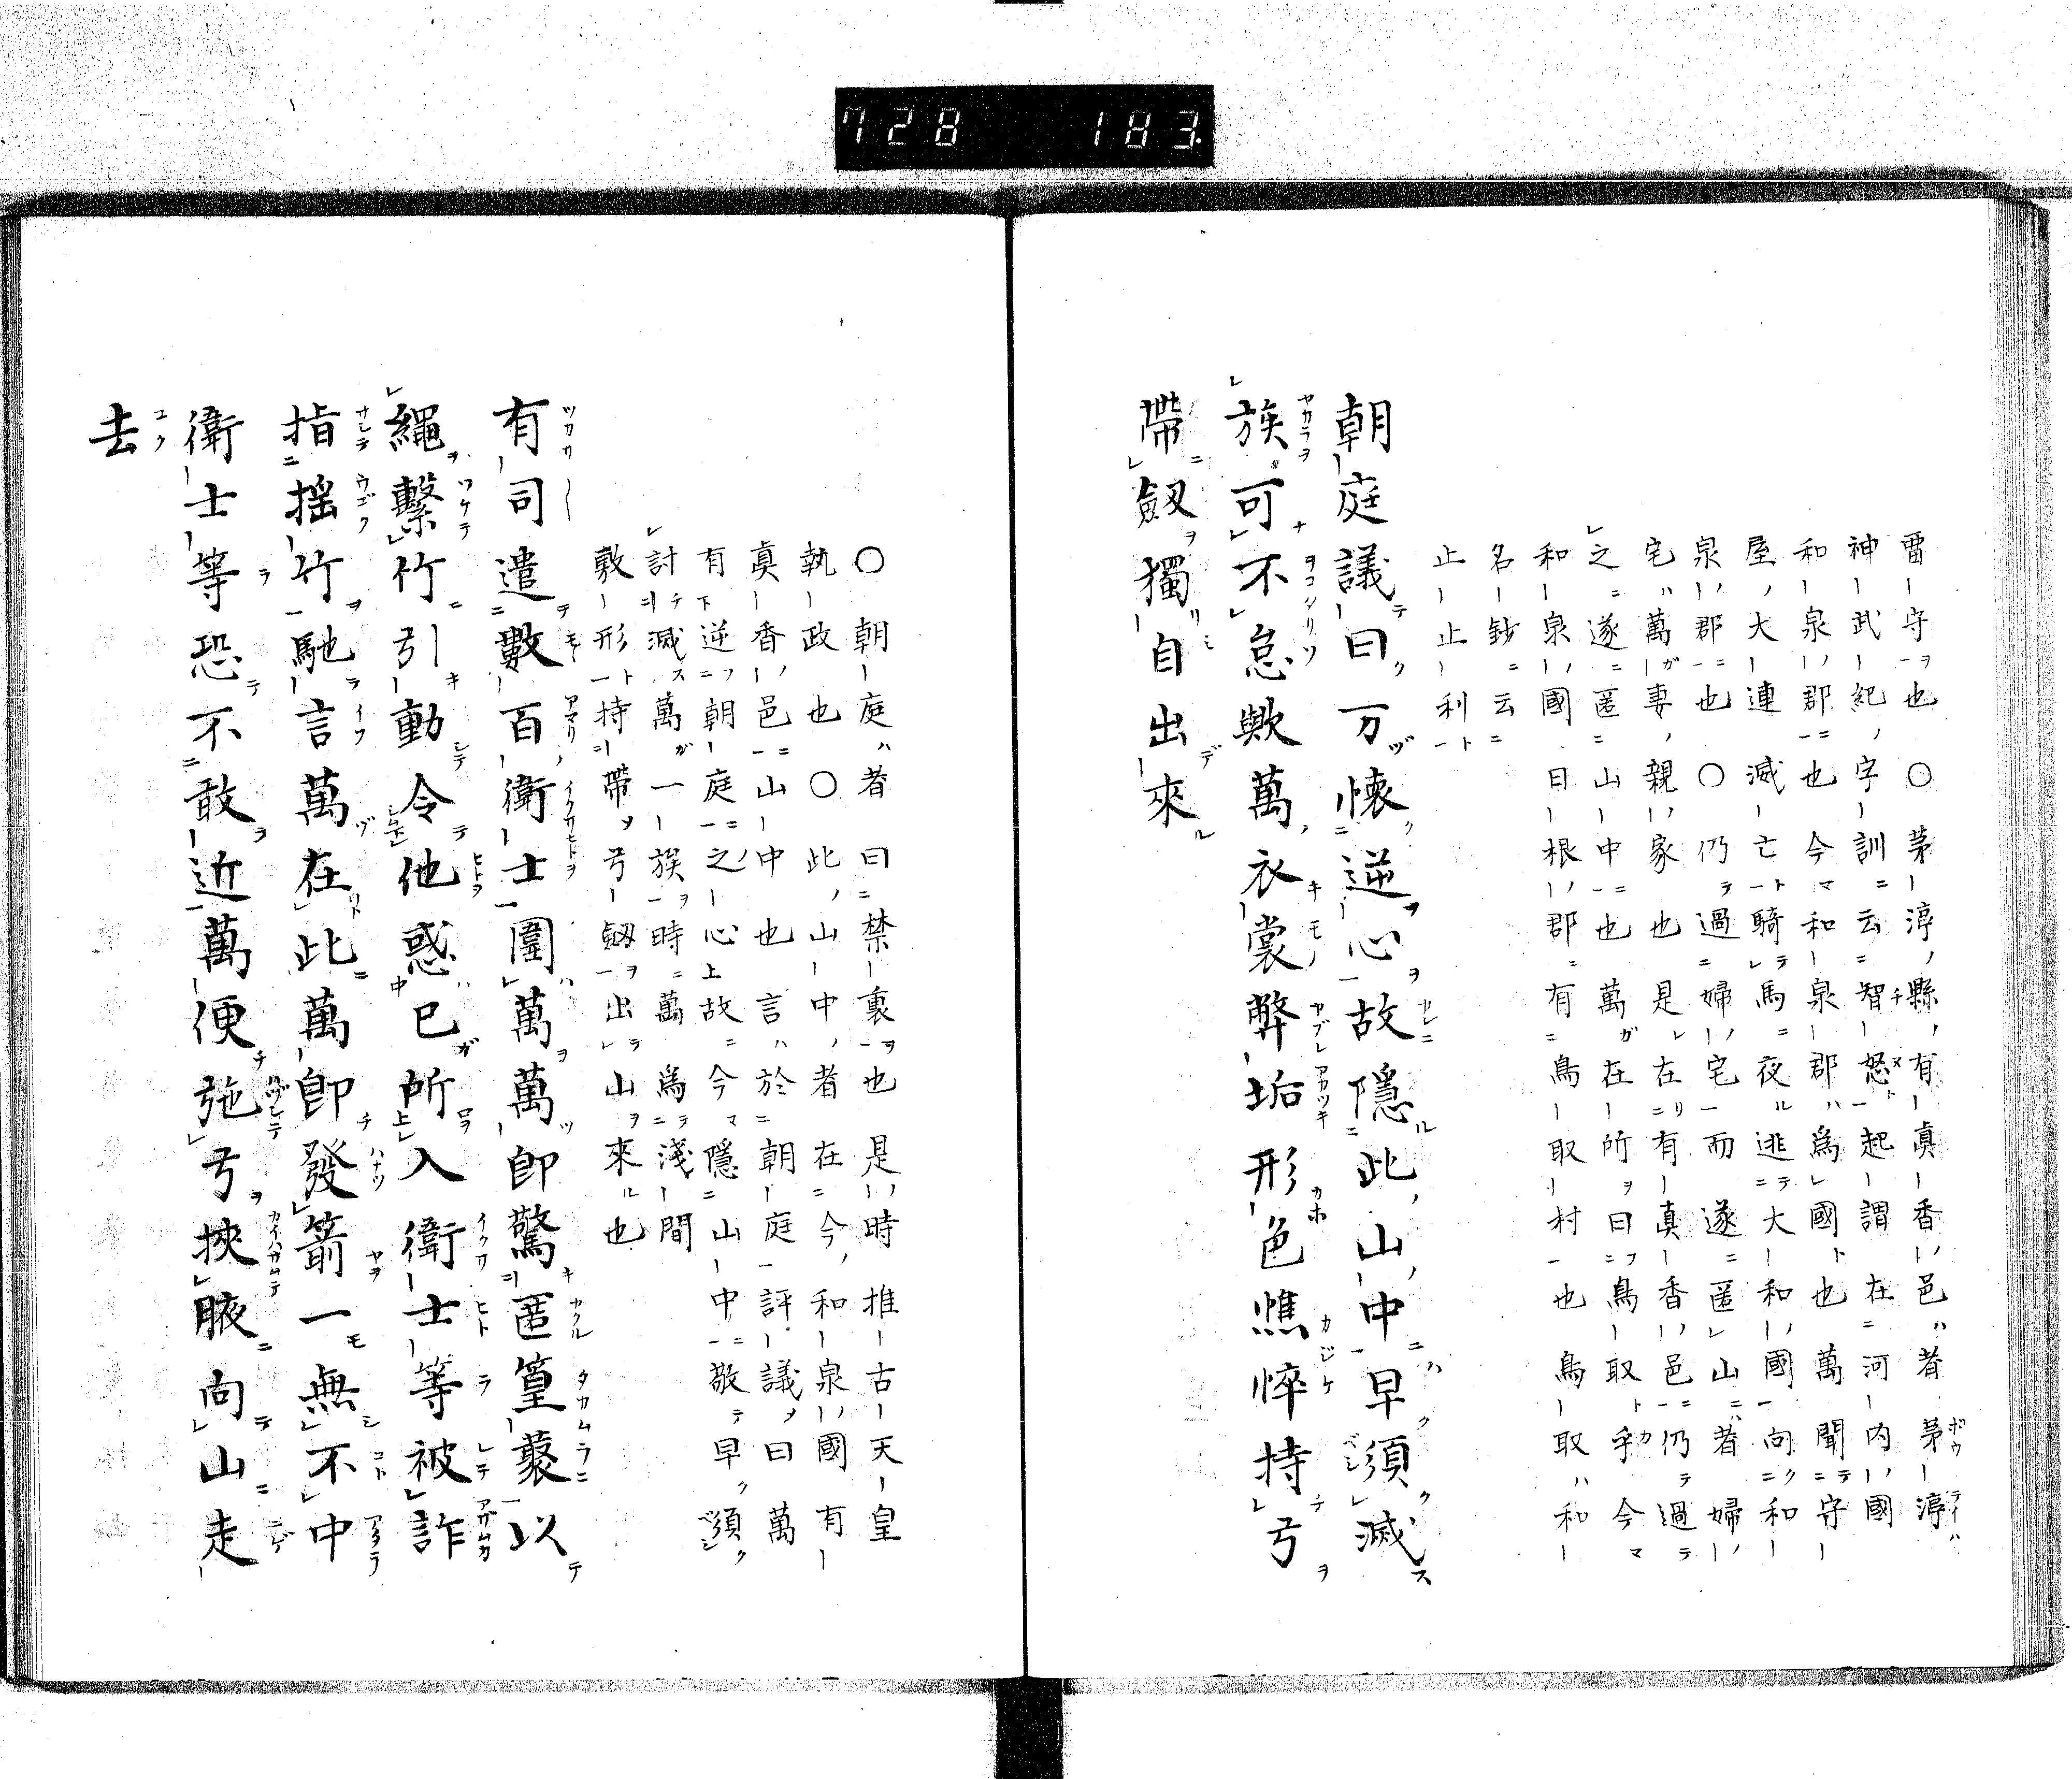 728 183
雷守也○茅渟縣有眞香邑者茅渟
神武紀字訓云智怒起謂在河内國
和泉郡也今和泉郡為國也萬聞守
屋大連滅亡騎馬夜逃大和國向和
泉郡也○仍過婦宅而遂匿山者婦
宅萬妻親家也是在有真香邑仍過
之遂匿山中也萬在所曰鳥取乎今
和泉國日根郡有鳥取村也鳥取和
名鈔云
止止利
朝庭議曰万懐逆心故隱此山中早須滅
族可不怠歟萬衣裳弊垢形色憔悴持弓
帶劔獨自出來
○朝庭者曰禁裏也是時推古天皇
執政也○此山中者在今和泉國有
眞香邑山中也言於朝庭評議曰萬
有逆朝庭之心故今隱山中敬早須
討滅萬一族時萬為淺間
敷形持帶弓劔出山來也
有司遣數百衛士圍萬萬卽驚匿篁藂以
繩繋竹引動令他惑己所入衛士等被詐
指揺竹馳言萬在此萬卽發箭一無不中
衛士等恐不敢近萬便弛弓挾腋向山走
去